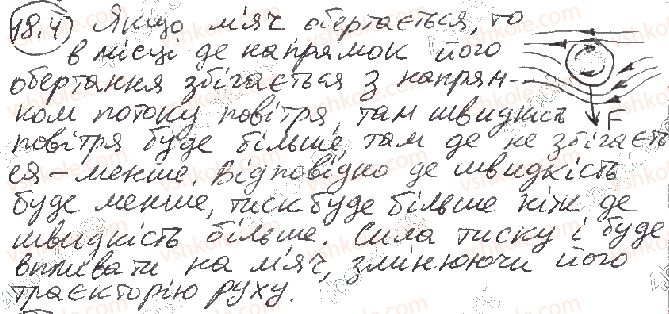 18.4) Якщо м'яч обертається, то
в місці де напрямок його
обертання збігається з напрям-
ком потоку повітря, там швидкість F
повітря буде більше, там де не збігаєть
ся - менше. Відповідно де швидкість
буде менше, тиск буде більше ніж де
швидкість більше. Сила тиску і буде
впливати на м'яч, змінюючи його
траєкторію руху.